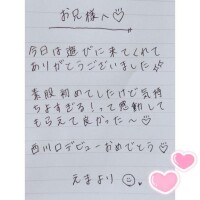 お兄様へ♡
今日は遊びに来てくれて
ありがとうございました
素股初めてしたけど気持
ちよすぎる！って感動して
もらえて良かった〜♡
西川口デビューおめでとう♡
えまより☺